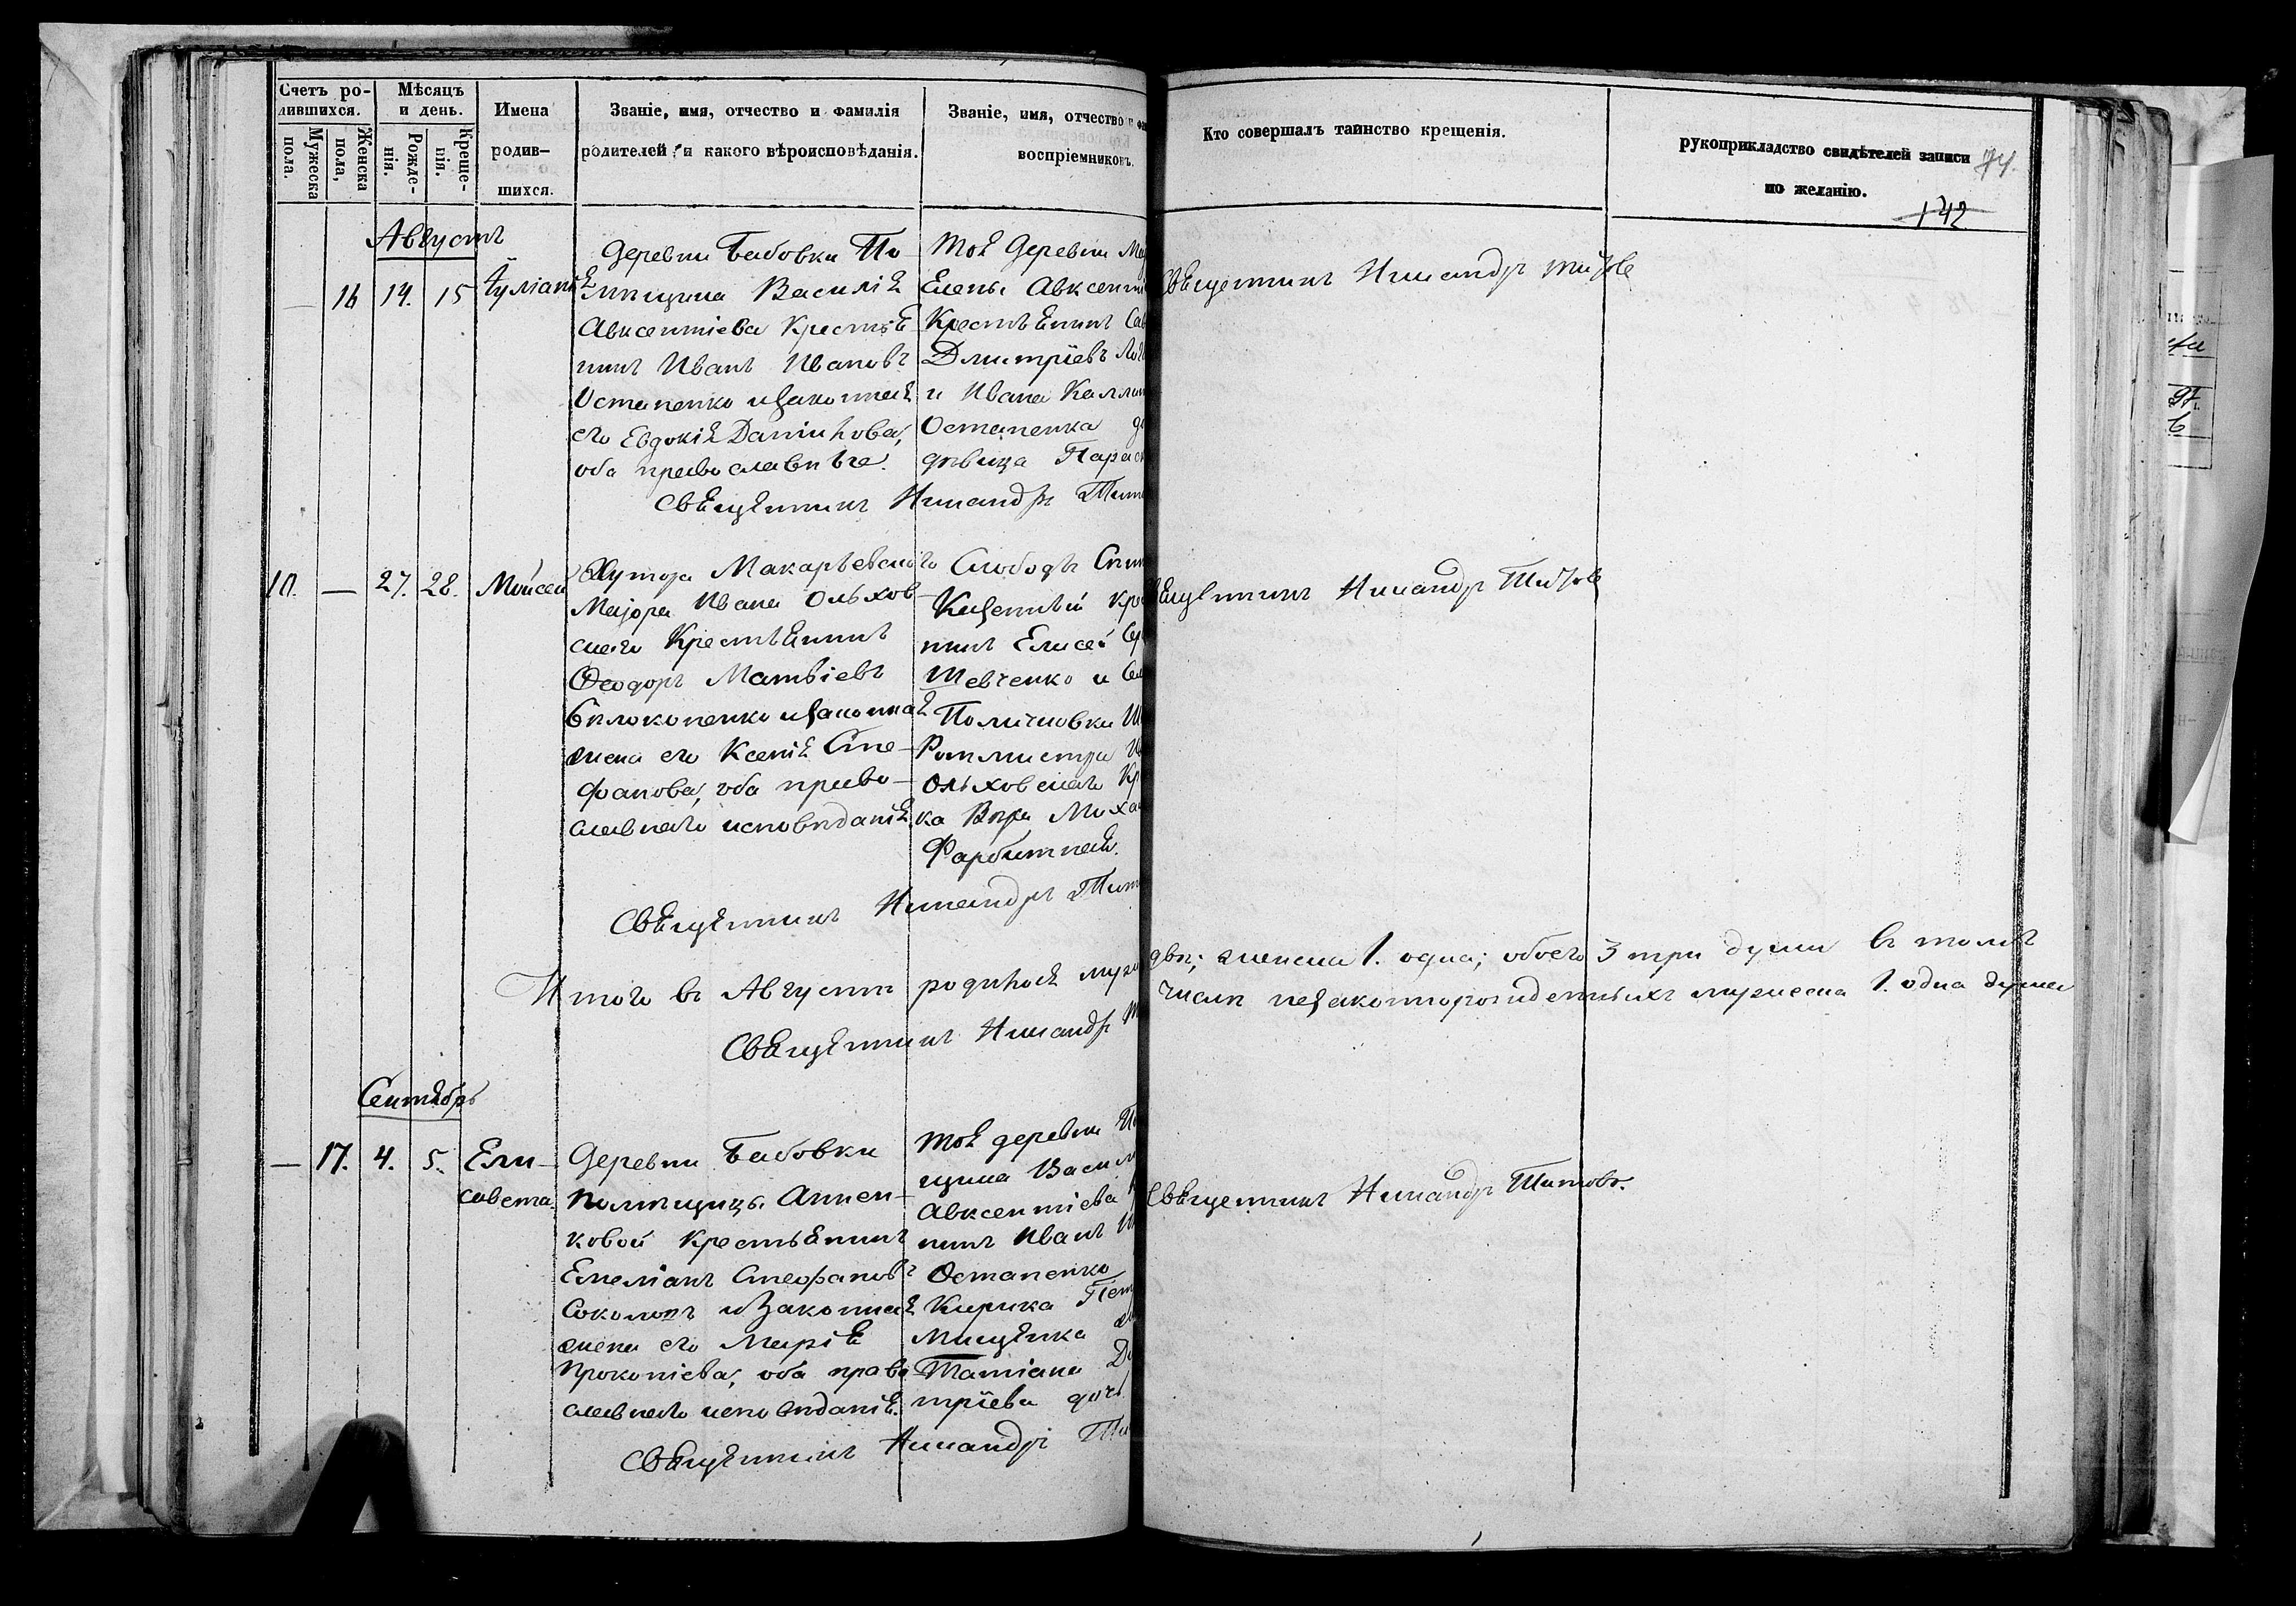 Счетъ ро-
дившихся.
Мужеска
пола.
Женска
пола,
Мѣсяцъ
и день.
Рожде-
нія.
Креще-
нія.
Имена
родив-
шихся.
Званіе, имя, отчество и фамилія
родителей, и какого вѣроисповѣданія.
Званіе, имя, отчество и
воспріемниковъ.
Кто совершалъ таинство крещенія.
рукоприкладство свидѣтелей записи
по желанію.
74.
142
Августъ
— 16 14. 15 Іуліанія
деревни Бабовки По-
мѣщика Василія
Авксентіева Крестья-
нинъ Иванъ Ивановъ
Остапенко и законная
его Евдокія Даніилова,
оба православные.
Тоя деревни
Елены Авксенті
Крестьянинъ
Дмитріевъ
и Ивана
Остапенка
дѣвица
Священникъ Никандръ Титовъ
Священникъ Никандръ
10. — 27. 28. Моисей
Хутора Макарьевскаго
Маіора Ивана Ольхов-
скаго Крестьянинъ
Феодоръ Матвіевъ
Бѣлоконенко и законная
жена его Ксенія Сте-
фанова, оба право-
славнаго исповѣданія.
Слободы
Казенный
нинъ Елисей
Шевченко и
Ротмистра
Ольховскаго
ка Вѣра
Священникъ Никандръ Титовъ
Священникъ Никандръ
Итого въ Августѣ родилось
двѣ; женска 1. одна; обоего 3 три души въ томъ
числѣ незаконнорожденныхъ мужеска 1. одна душа
Священникъ Никандръ
Сентябрь
— 17. 4. 5. Ели-
савета.
Деревни Бабовки
Помѣщицы Аннен-
ковой Крестьянинъ
Емеліанъ Стефановъ
Соколовъ и законная
жена его Марія
Прокопіева, оба право
славнаго исповѣданія.
Тоя деревни
щика
Авксентіева
нинъ Иванъ
Остапенко
Кирика
Мищенка
Татіана
тріева дочь
Священникъ Никандръ Титовъ.
Священникъ Никандръ